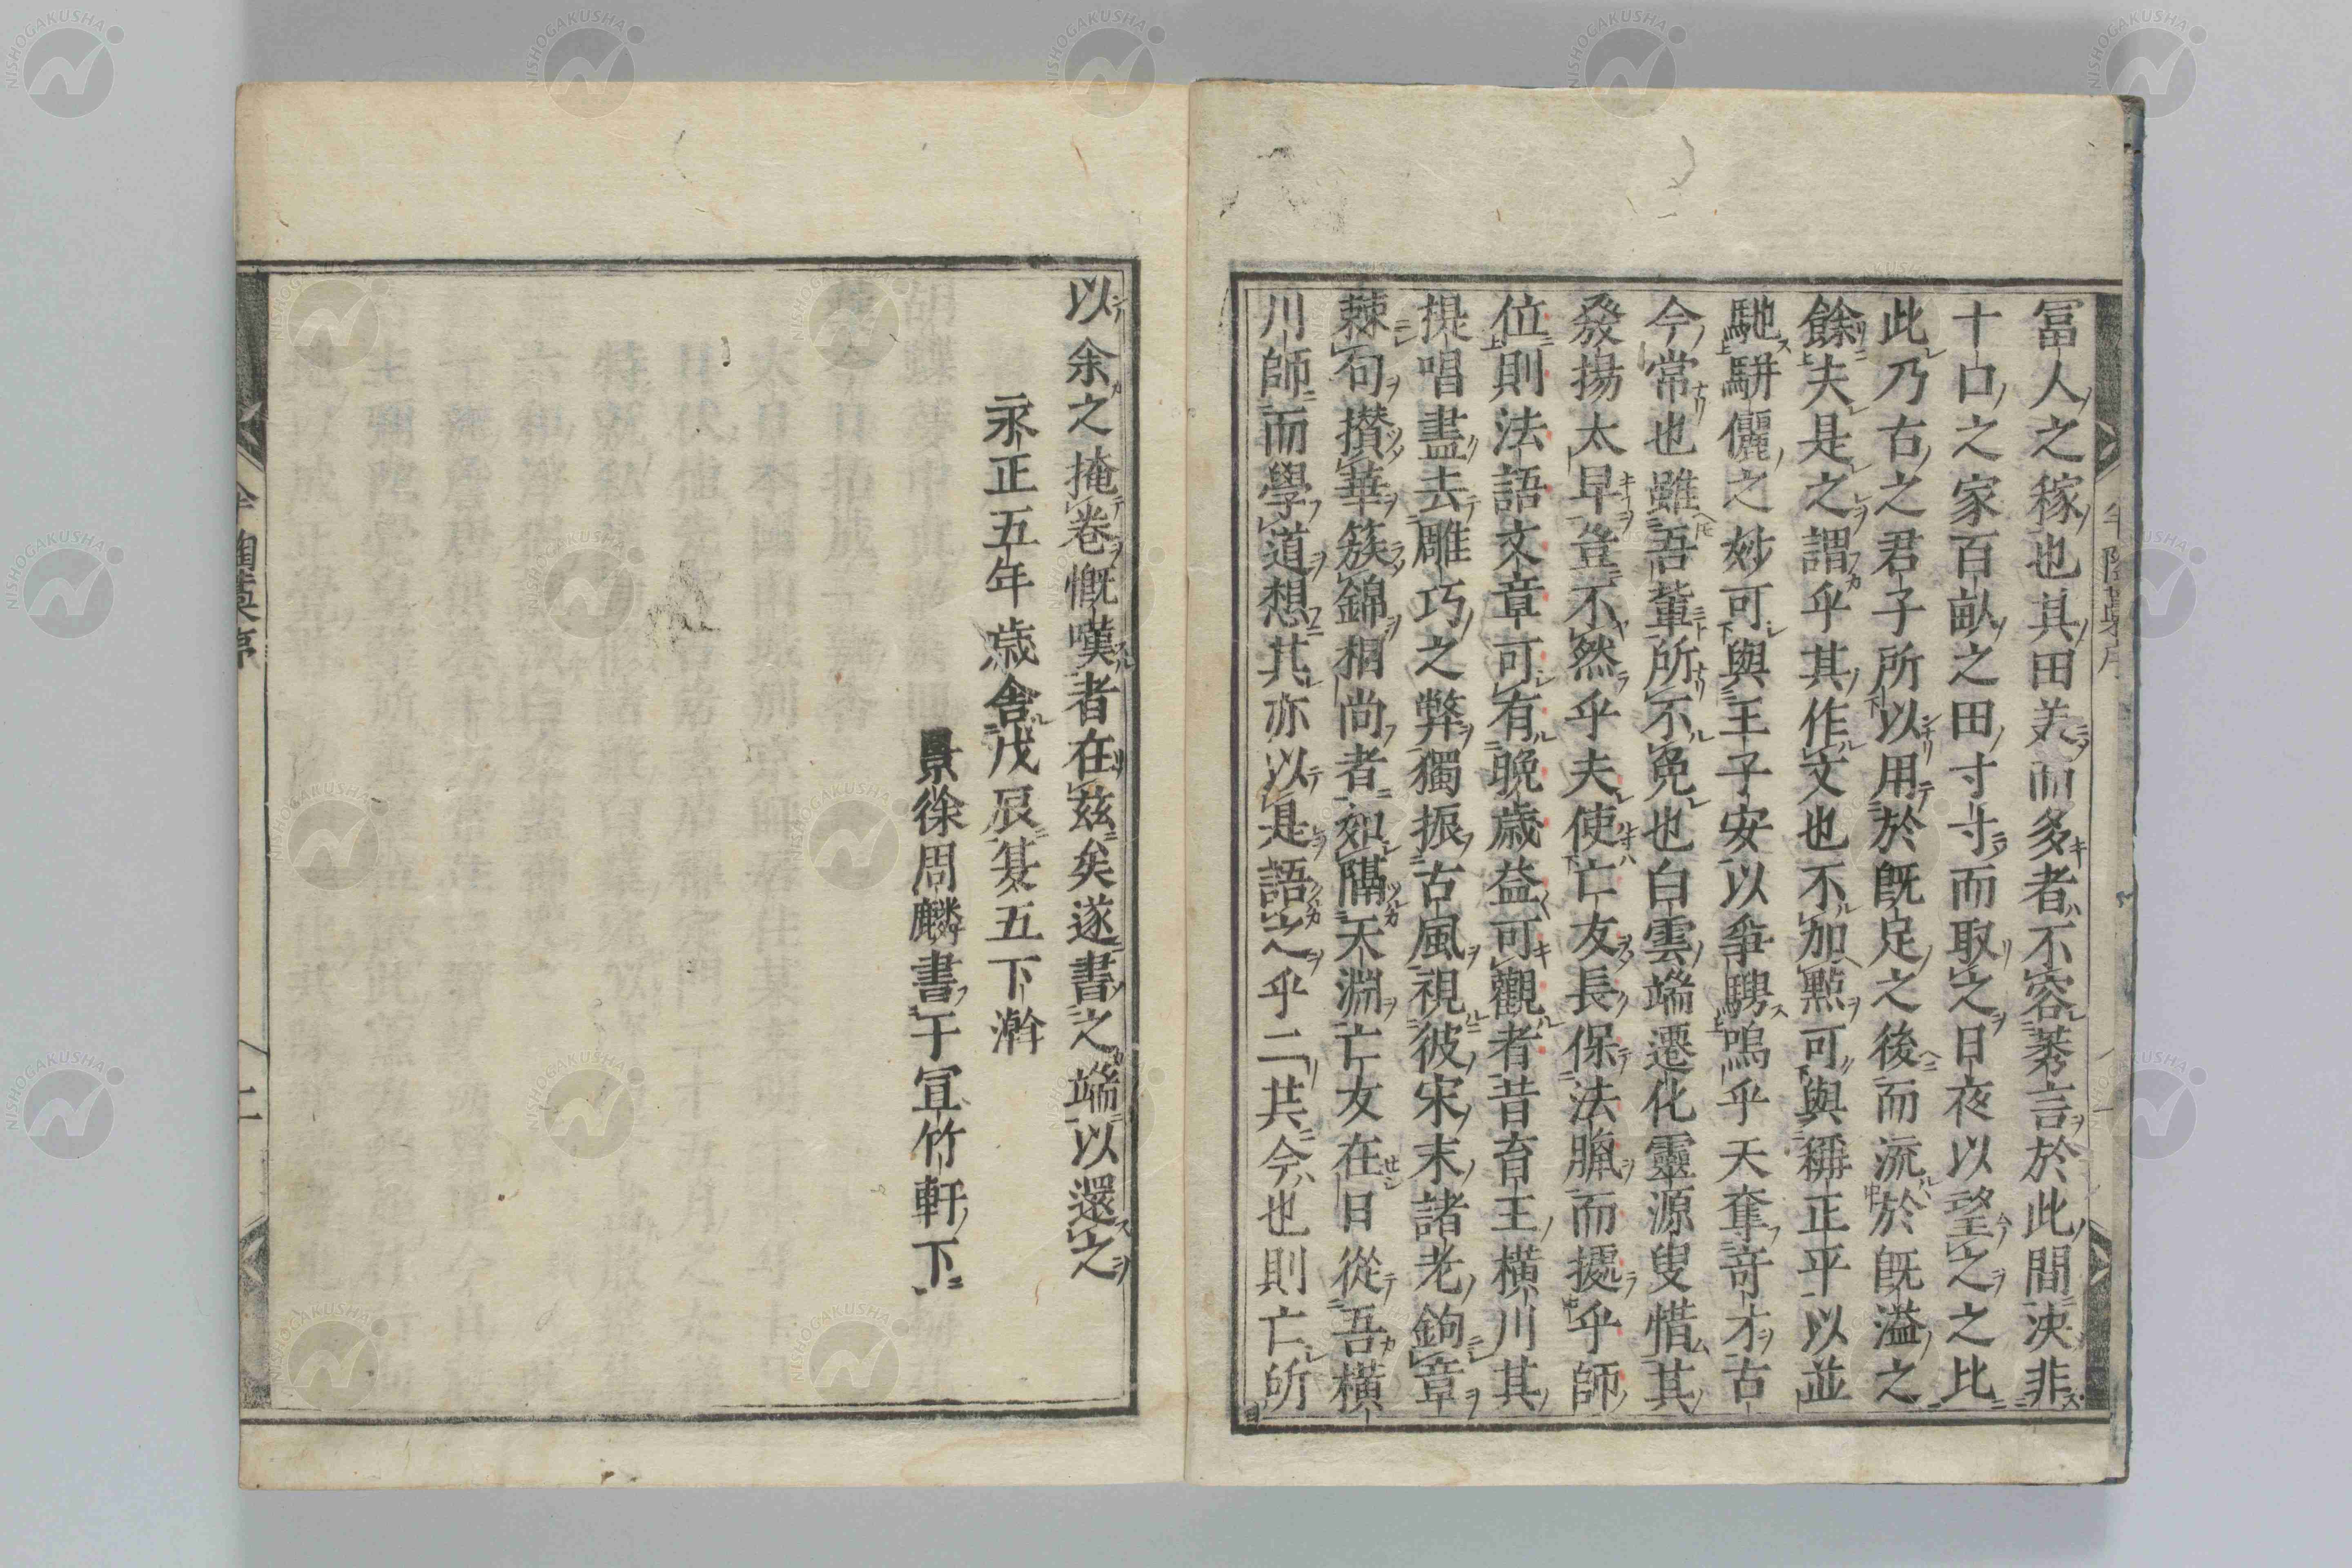 冨人之稼也其田美而多者不容莠言於此間決非
十口之家百畝之田寸寸而取之日夜以望之之比
此乃古之君子所以用於既足之後而流於既溢之
餘夫是之謂乎其作文也不加點可與稱正平以並
馳駢儷之妙可與王子安以爭騁嗚乎天奪竒才古
今常也雖吾輩所不免也白雲端遷化靈源叟惜其
發揚太早豈不然乎夫使亡友長保法臘而據乎師
位則法語文章可有晩歳益可觀者昔育王橫川其
提唱盡去雕巧之弊獨振古風視彼宋末諸老鉤章
棘句攅華簇錦相尚者如隔天淵亡友在日從吾橫
川師而學道想其亦以是語之乎二共今也則亡所
以余之掩卷慨嘆者在茲矣遂書之端以還之
永正五年歳舍戊辰夷五下澣
景徐周麟書于宜竹軒下
二
NISHOGAKUSHA